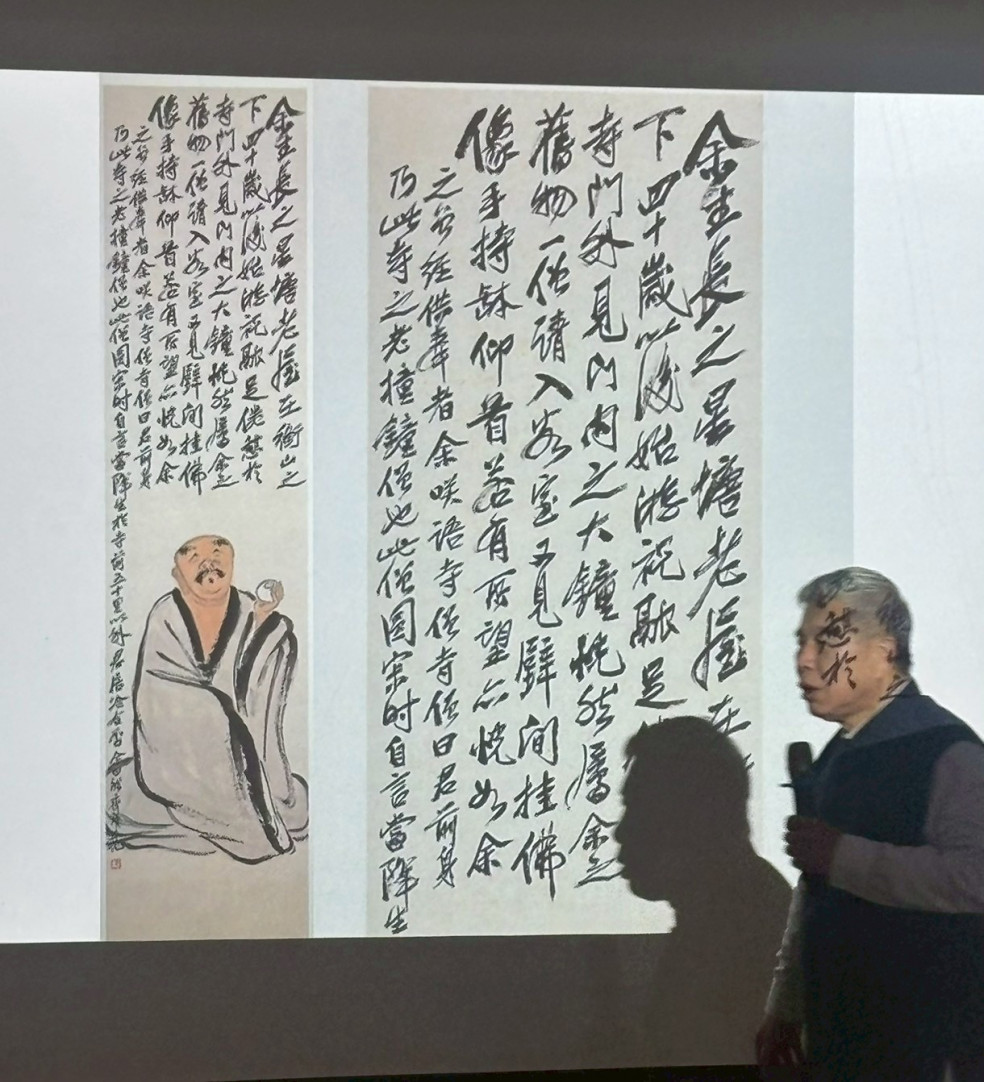 余生長之星塘老屋在衡山之
下四十歲以後始游祝融足倦憩於
寺門外見門內之大鐘恍然屬余之
舊物一僧請入客室又見壁間挂佛
像手持缽仰首若有所望亦恍如余
之曾經供奉者余咲語寺僧寺僧曰君前身
乃此寺之老撞鐘僧也此僧圓寂時自言當降生於寺前五十里以外君居恰合
余生長之星塘老屋在
下四十歲以後始游祝融足
憩於
寺門外見門內之大鐘恍然屬余之
舊物一僧請入客室又見壁間挂佛
像手持缽仰首若有所望亦恍如余
之曾經供奉者余咲語寺僧寺僧曰君前身
乃此寺之老撞鐘僧也此僧圓寂時自言當降生